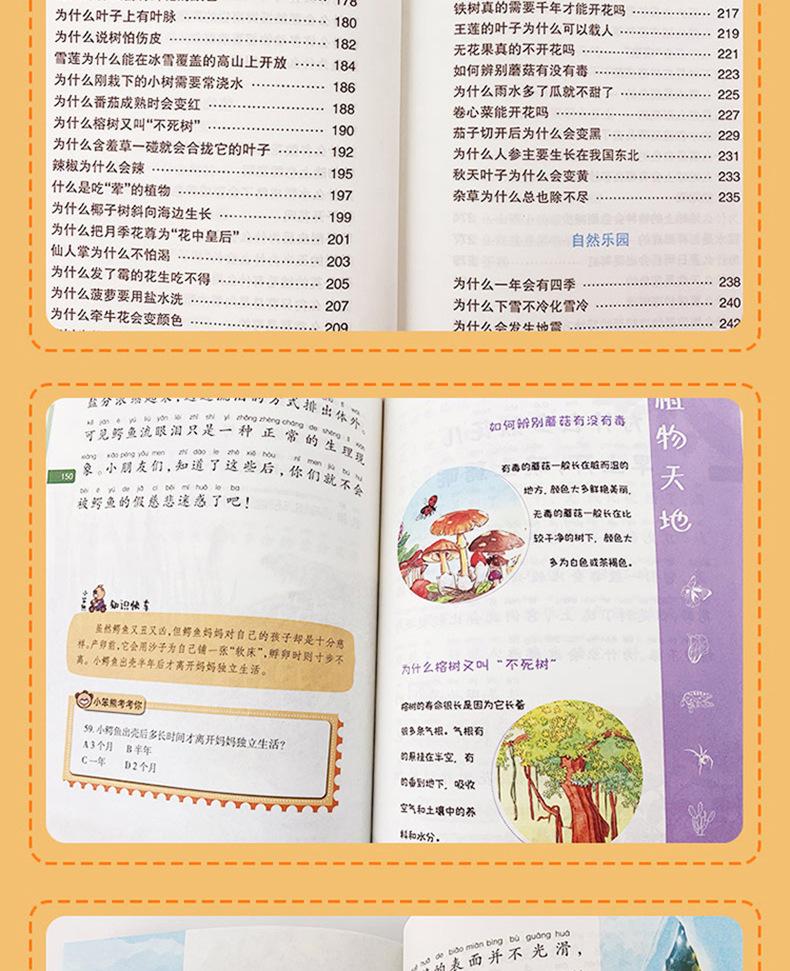 178
为什么叶子上有叶脉 180
为什么说树怕伤皮 182
雪莲为什么能在冰雪覆盖的高山上开放 184
为什么刚栽下的小树需要常浇水 186
为什么番茄成熟时会变红 188
为什么榕树又叫“不死树” 190
为什么含羞草一碰就会合拢它的叶子 192
辣椒为什么会辣 195
什么是吃“荤”的植物 197
为什么椰子树斜向海边生长 199
为什么把月季花尊为“花中皇后” 201
仙人掌为什么不怕渴 203
为什么发了霉的花生吃不得 205
为什么菠萝要用盐水洗 207
为什么牵牛花会变颜色 209
铁树真的需要千年才能开花吗 217
王莲的叶子为什么可以载人 219
无花果真的不开花吗 221
如何辨别蘑菇有没有毒 223
为什么雨水多了瓜就不甜了 225
卷心菜能开花吗 227
茄子切开后为什么会变黑 229
为什么人参主要生长在我国东北 231
秋天叶子为什么会变黄 233
杂草为什么总也除不尽 235
自然乐园
为什么一年会有四季 238
为什么下雪不冷化雪冷 240
为什么会发生地震 242
方式排出体外。
可见鳄鱼流眼泪只是一种正常的生理现
象。小朋友们，知道了这些后，你们就不会
被鳄鱼的假慈悲迷惑了吧！
150
知识快车
虽然鳄鱼又丑又凶，但鳄鱼妈妈对自己的孩子却是十分慈
祥。产卵前，它会用沙子为自己铺一张“软床”，孵卵时则寸步不
离。小鳄鱼出壳半年后才离开妈妈独立生活。
小笨熊考考你
59.小鳄鱼出壳后多长时间才离开妈妈独立生活？
A 3个月 B 半年
C 一年 D 2个月
如何辨别蘑菇有没有毒
有毒的蘑菇一般长在脏而湿的
地方，颜色大多鲜艳美丽，
无毒的蘑菇一般长在比
较干净的树下，颜色大
多为白色或茶褐色。
为什么榕树又叫“不死树”
榕树的寿命很长是因为它长着
很多条气根。气根有
的悬挂在半空，有
的垂到地下，吸收
空气和土壤中的养
料和水分。
植物天地
de biǎo miàn bìng bù guāng huá
的表面并不光滑，